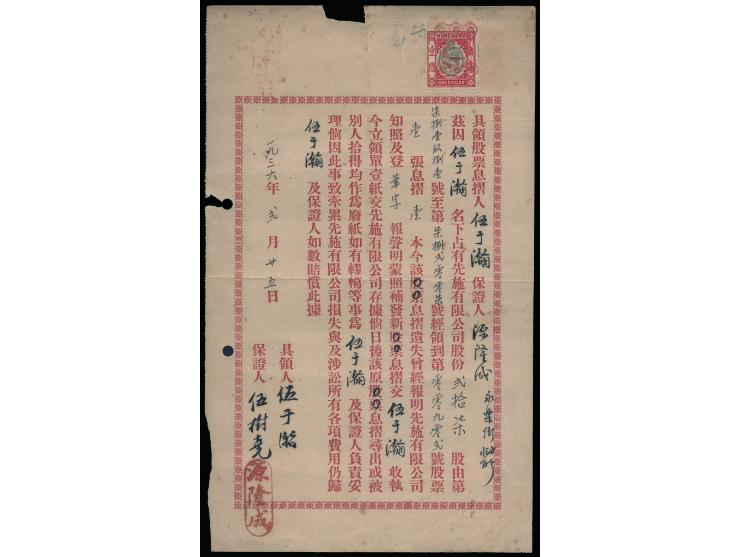 HONG KONG
ONE DOLLAR
具領股票息摺人伍于瀚 保證人 源隆成 永樂街
茲因 伍于瀚 名下占有先施有限公司股份 弍拾柒 股由第
柒捌壹玖捌壹號至第柒捌弍零零柒號經領到第零零九零弍號股票
壹 張息摺 壹 本今該股票息摺遺失曾經報明先施有限公司
知照及登 華字 報聲明蒙照補發新股票息摺交 伍于瀚 收執
今立領單壹紙交先施有限公司存據倘日後該原股票息摺尋出或被
別人拾得均作爲廢紙如有轇轕等事爲 伍于瀚 及保證人負責妥
理倘因此事致牽累先施有限公司損失與及涉訟所有各項費用仍歸
伍于瀚 及保證人如數賠償此據
一九三六年 弍 月 廿五 日
具領人 伍于瀚
保證人 伍樹堯
源隆成